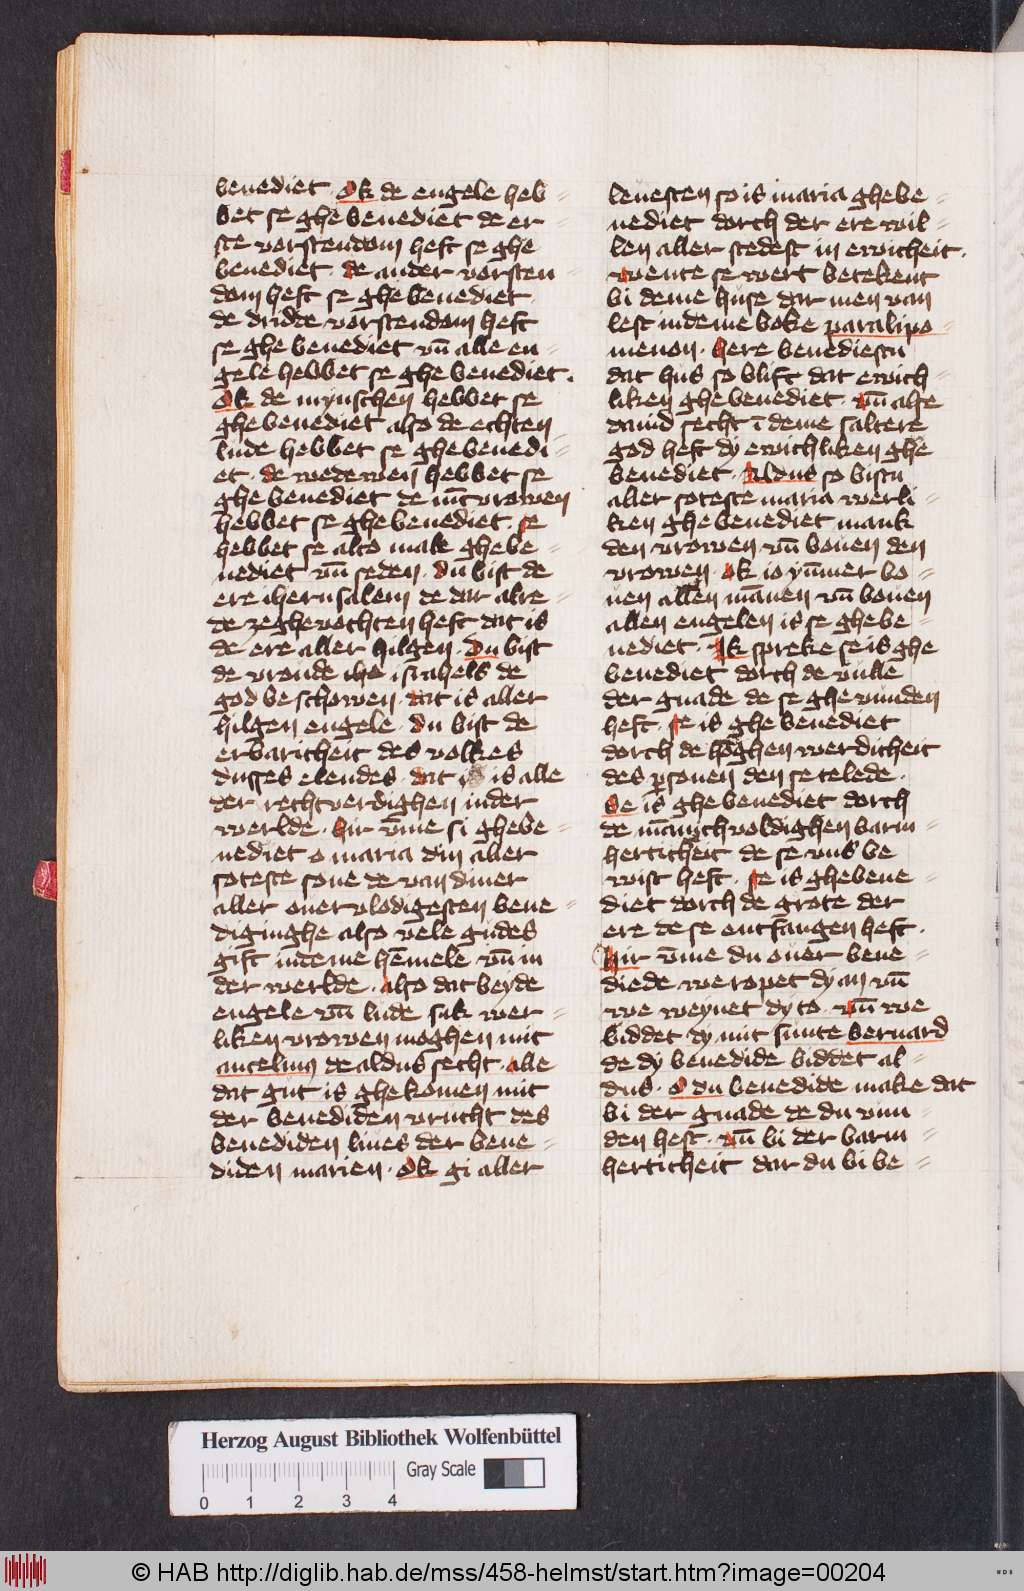 benediet · Ok de engele heb⸗
bet se ghe benediet de er⸗
ste vorstendom heft se ghe
benediet · de ander vorsten⸗
dom heft se ghe benediet ·
de dridde vorstendom heft
se ghe benediet vn̄ alle en⸗
gele hebbet se ghe benediet ·
Ok de mynschen hebbet se
ghe benediet also de echten
lude hebbet se ghe benedi⸗
et · de wedewen hebbet se
ghe benediet de vrowen
hebbet se ghe benediet · se
hebbet se alto male ghebe⸗
nediet vn̄ seden · Du bist de
ere iherusalem de dar alre⸗
de zeghevochten heft dat is
de ere aller hilgen · Du bist
de vroude israhels de
god beschowen · dat is aller
hilgen engele · Du bist de
erbaricheit des volkes
dusses elendes · dat is alle
der rechtverdighen in der
werlde · Hir v̄me si ghebe⸗
nediet o maria din aller
soteste sone de van diner
aller overvlodigesten bene⸗
diginghe also vele gudes
gift in deme hēmele vn̄ in
der werlde · Also dat beyde
engele vn̄ lude suk wer⸗
liken vrowen moghen mit
ancelmus de aldus secht · alle
dat gut is ghekomen mit
der benediden vrucht des
benediden lives der bene⸗
diden marien · Ok gi aller
levesten so is maria ghebe⸗
nediet dorch der ere wil⸗
len aller stedest in ewicheit ·
wente se wert betekent
bi deme huse dar men van
lest in deme boke paralipo⸗
menon · here benediestu
dat hus so blift dat ewich⸗
liken ghe benediet · vn̄ alse
david secht ī deme saltere
god heft dy ewichliken ghe
benediet · Aldus so bistu
aller soteste maria werli⸗
ken ghe benediet mank
den vrowen vn̄ boven den
vrowen · ok io ȳmmer bo⸗
ven allen māñen vn̄ boven
allen engelen is se ghebe⸗
nediet · Ik spreke se is ghe
benediet dorch de vulle
der gnade de se ghe vunden
heft · se is ghe benediet
dorch de hoghen werdicheit
des personen den se telede ·
Se is ghe benediet dorch
de mānichvoldighen barm⸗
herticheit de se uns be
wist heft · se is ghebene⸗
diet dorch de grote der
ere de se entfangen heft ·
Hir v̄me du over bene⸗
diede we ropet dy an vn̄
we weynet dy to · vn̄ we
biddet dy mit sunte bernard
de dy benedide biddet al⸗
dus · O du benedide make dat
bi der gnade de du vun⸗
den hest · vn̄ bi der barm⸗
herticheit dar du bi be⸗
Herzog August Bibliothek Wolfenbüttel
Gray Scale
0 1 2 3 4
© HAB http://diglib.hab.de/mss/458-helmst/start.htm?image=00204